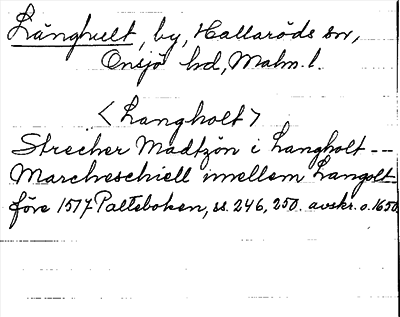 Långhult, by, Hallaröds sn,
Onsjö hd, Malm. l.
<Langholt>
Strecher Madtzön i Langholt --
Marcheschiell imellem Langolt
före 1577 Palteboken, ss. 246, 250. avskr. o. 1650.